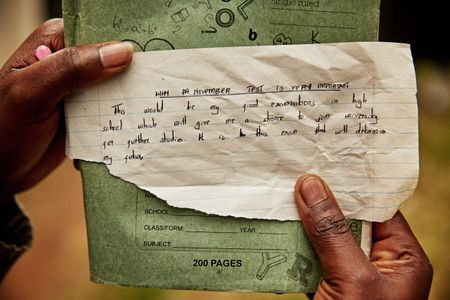 Single ruled
K
WHY NOVEMBER TEST IS VERY IMPORTANT
This would be my final examinations in high
school which will give me a chance to join university
for further studies. It is this exam that will determine
my future.
NAME
SCHOOL
CLASS/FORM: YEAR:
SUBJECT:
200 PAGES
Y R